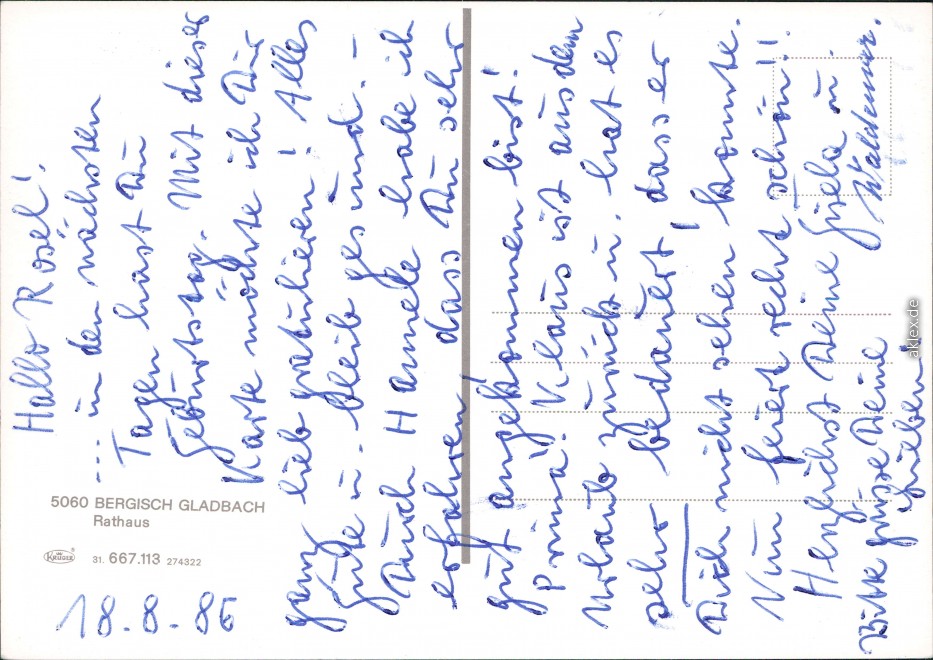 Hallo Rosel!
... in den nächsten
Tagen hast Du
Geburtstag. Mit dieser
Karte möchte ich Dir
ganz lieb gratulieren! Alles
Gute u. bleib gesund. –
Durch Hannele habe ich
erfahren, dass Du sehr
gut angekommen bist!
Prima! Klaus ist aus dem
Urlaub zurück u. hat es
sehr bedauert, dass er
Dich nicht sehen konnte.
Nun feiert recht schön!!
Herzlichst Deine Gisela u.
Waldemar.
Bitte grüsse Deine
Lieben
5060 BERGISCH GLADBACH
Rathaus
KRÜGER 31. 667.113 274322
18.8.86
aklex.de